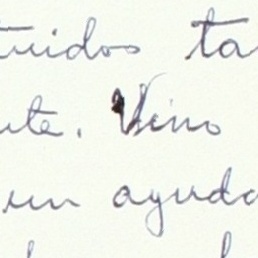 tuidos ta
nte. Vino
un ayuda